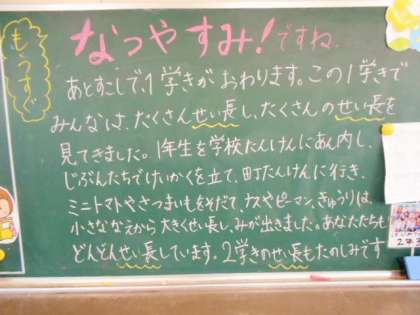 もうすぐ
なつやすみ！ですね。
あとすこしで1学きがおわります。この1学きで
みんなは、たくさんせい長し、たくさんのせい長を
見てきました。1年生を学校たんけんにあん内し、
じぶんたちでけいかくを立て、町たんけんに行き、
ミニトマトやさつまいもをそだて、ナスやピーマン、きゅうりは、
小さななえから大きくせい長しみが出きました。あなたたちも
どんどんせい長しています。2学きのせい長もたのしみです